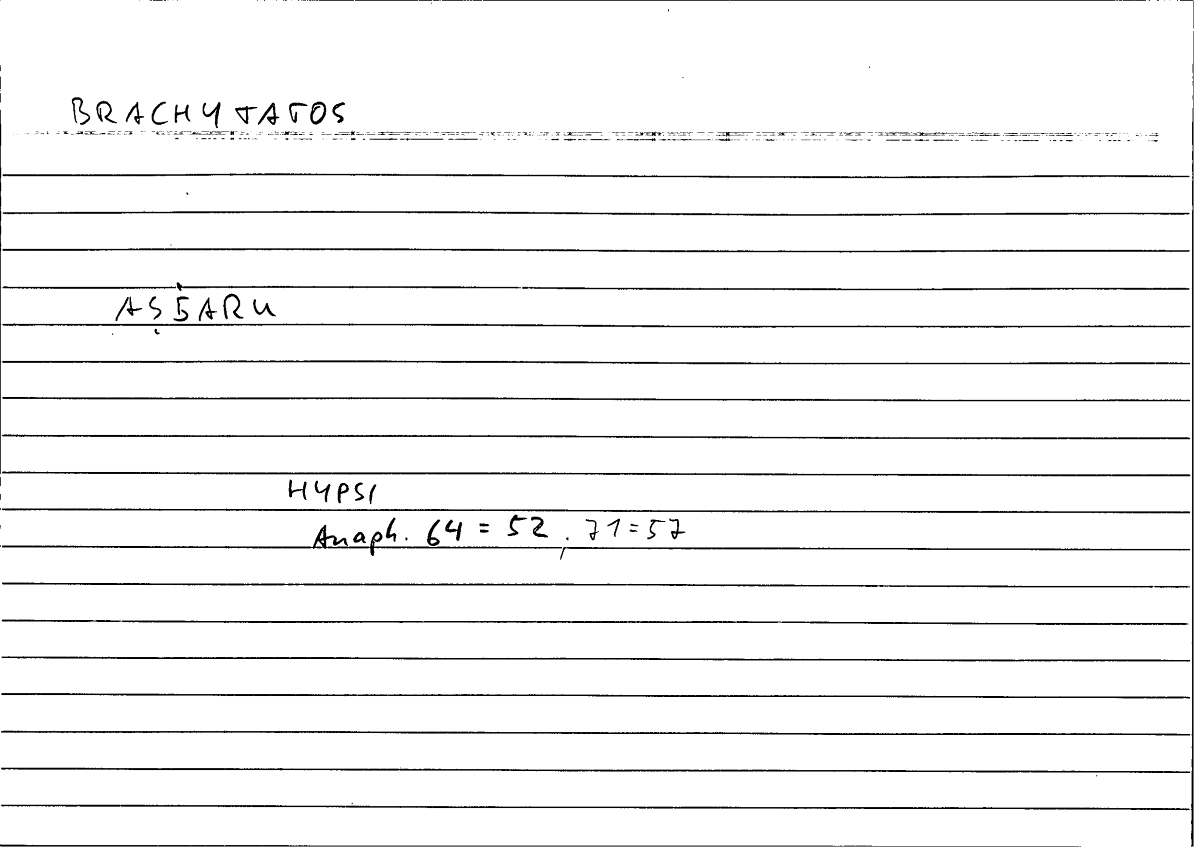 BRACHYTATOS
AṢĠARU
HYPSI
Anaph. 64 = 52, 71 = 57